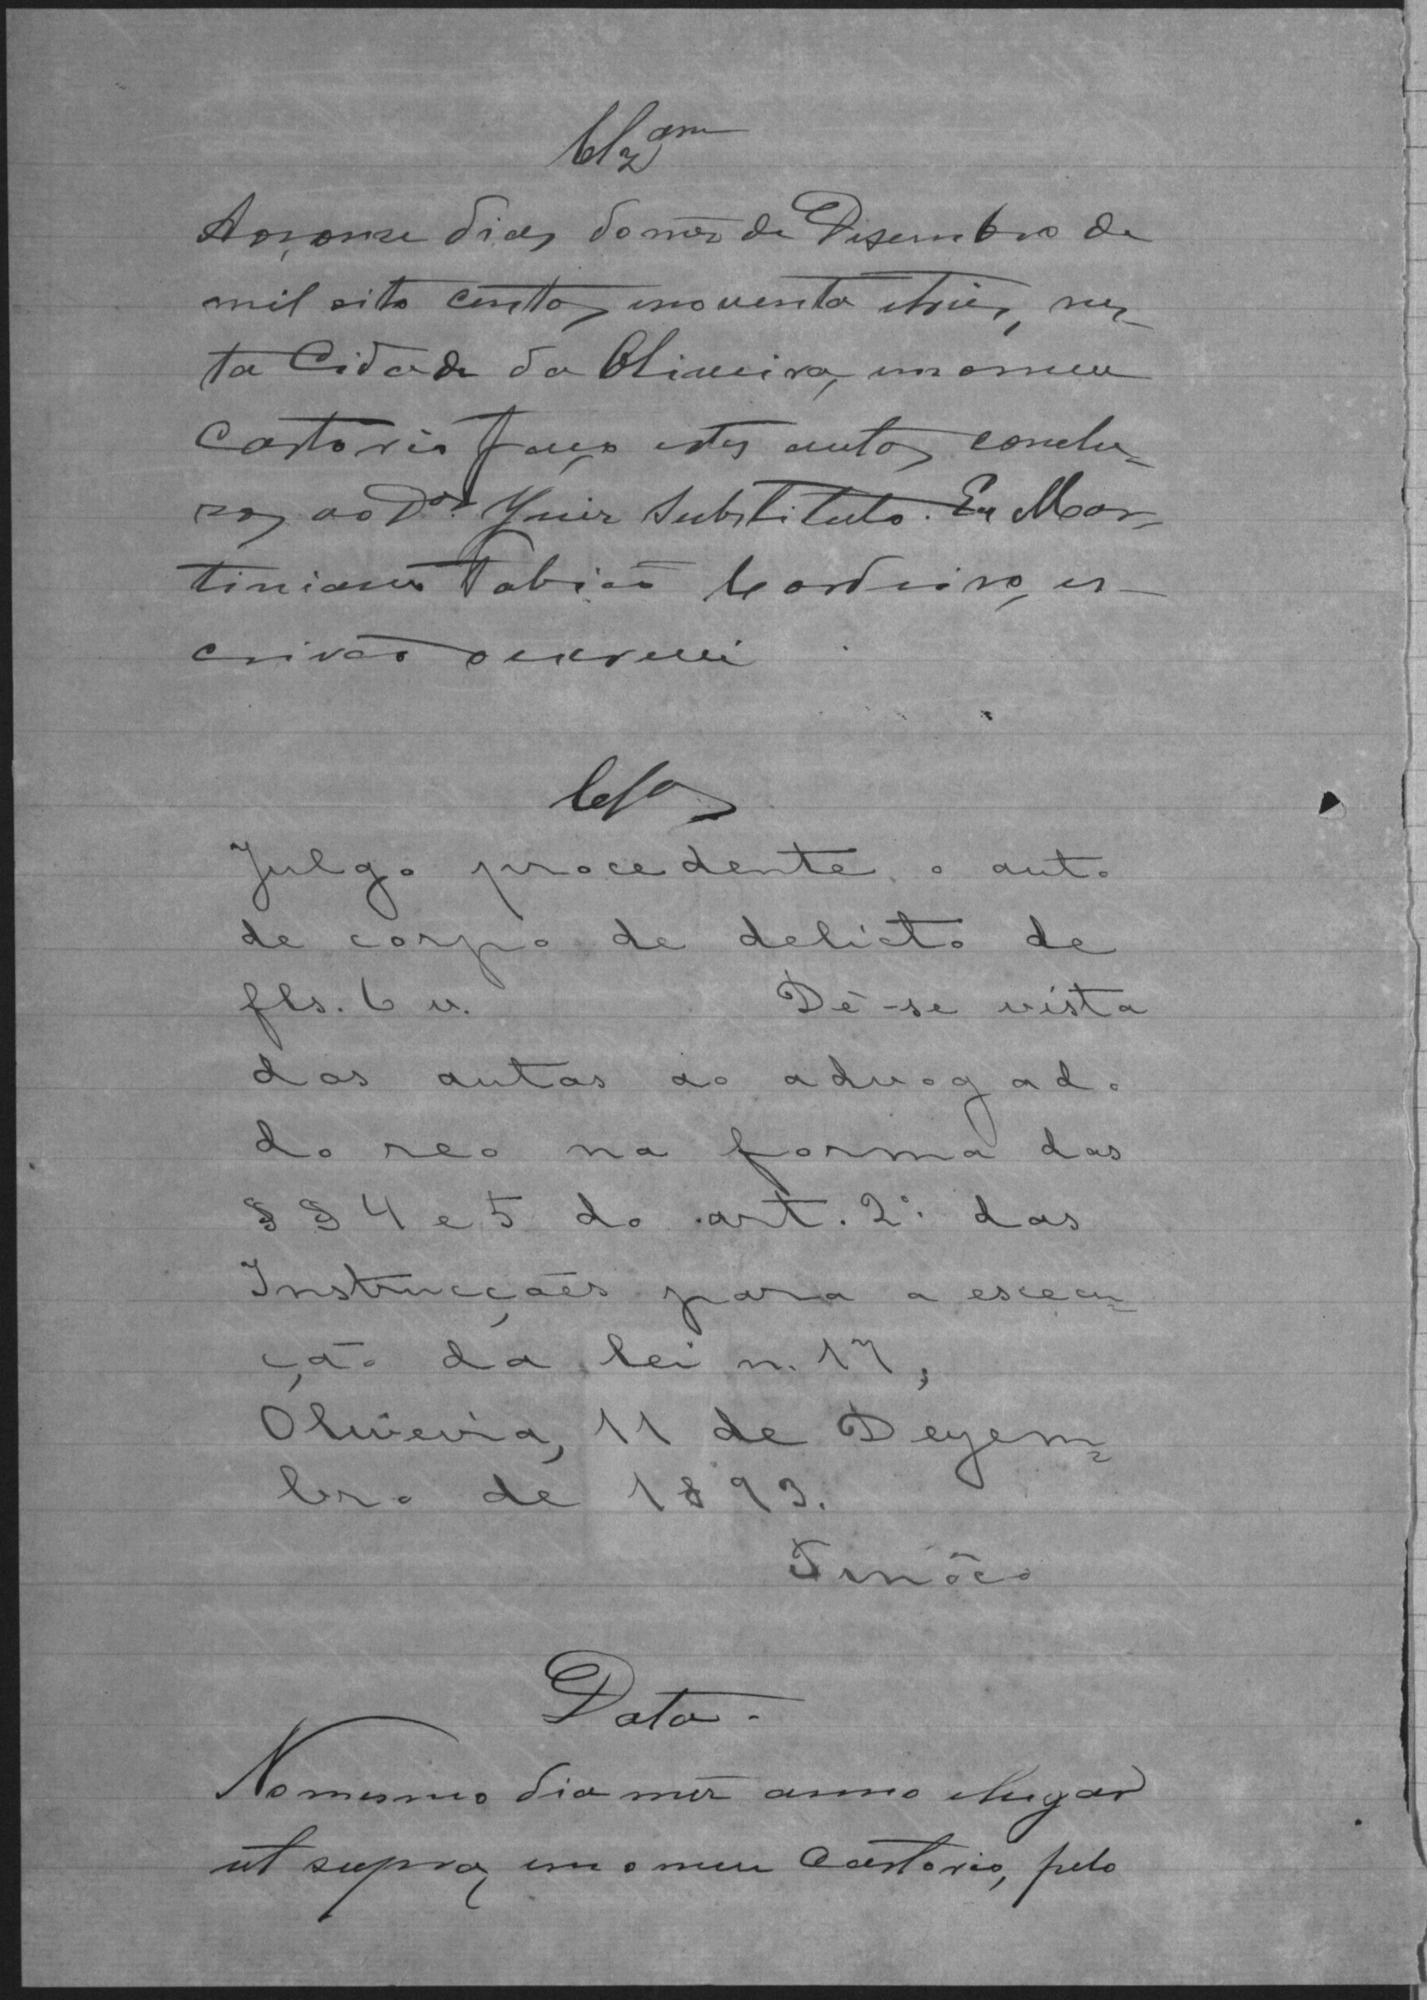 Clzam
Aos onze dias do mês de Desembro de
mil oito centos e noventa e tres, nes-
ta Cidade da Oliveira, em o meu
Cartorio faço estes autos conclu-
sos ao Dor. Juiz Substituto. Eu Mar-
tiniano Fabião Cordeiro, es-
crivão o escrevi
Clsos
Julgo procedente o auto
de corpo de delicto de
fls. 6 v. Dê-se vista
dos autos ao advogado
do reo na forma dos
§§ 4 e 5 do art. 2º das
Instrucções para a execu-
ção da lei n. 17,
Oliveira, 11 de Dezem-
bro de 1893.
Tinôco
Data.
No mesmo dia mez anno e lugar
ut supra, em o meu Cartorio, pelo